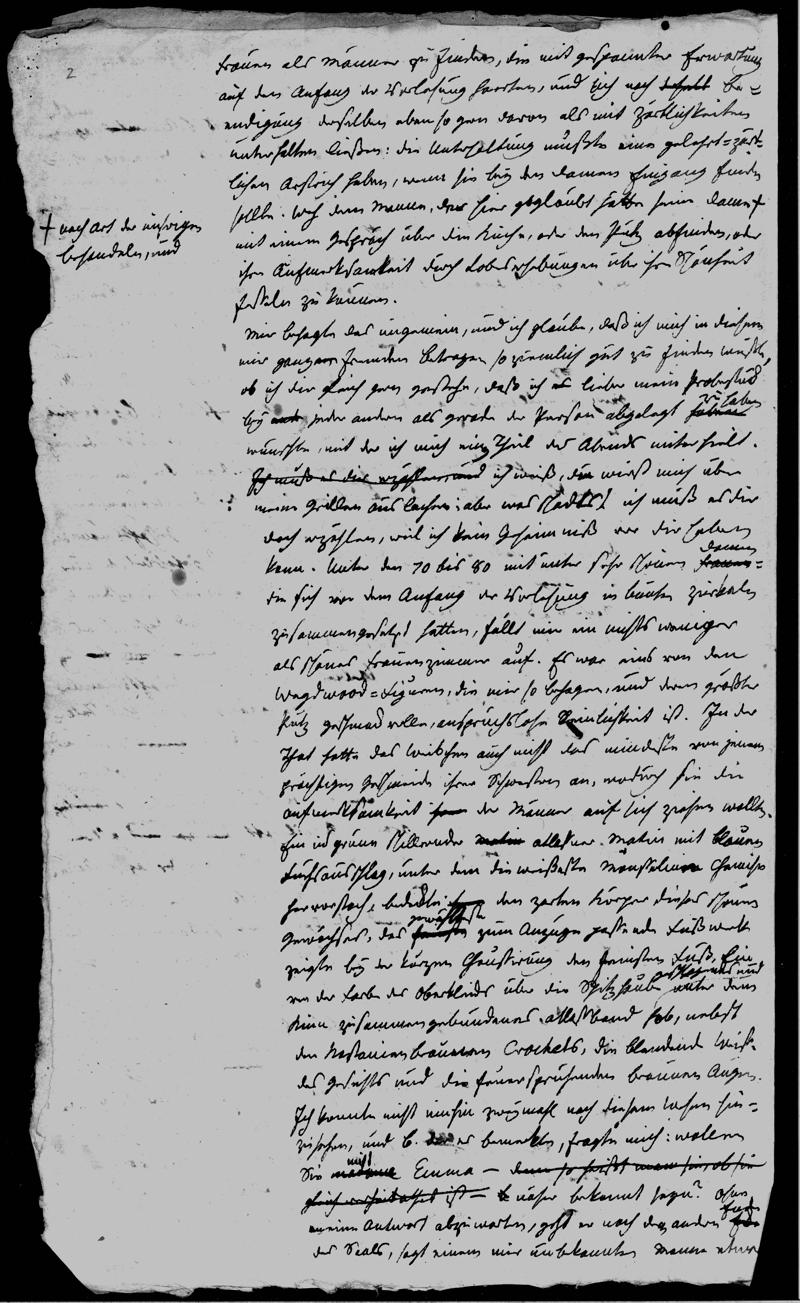 2
Frauen als Männer zu finden, die mit gespannter Erwartung
auf den Anfang der Vorlesung harrten, und sich nach be=
endigung derselben eben so gern davon als mit Zärtlichkeiten
unterhalten ließen: die Unterhaltung mußte einen gelehrt=zärt=
lichen Anstrich haben, wenn sie bey den Damen Eingang finden
sollte. Weh dem Manne, der hier geglaubt hätte seine Damen +
+ nach Art der unsrigen
behandeln, und
mit einem Gespräch über die Küche, oder den Putz abfinden, oder
ihre Aufmerksamkeit durch Lobeserhebungen über ihre Schönheit
fesseln zu können.
Mir behagte das ungemein, und ich glaube, daß ich mich in diesem
mir ganz fremden Betragen so ziemlich gut zu finden wußte,
ob ich dir gleich gern gestehe, daß ich lieber mein Probestück
bey jeder andern als gerade der Person abgelegt zu haben
wünschte, mit der ich mich ein Theil des Abends unterhielt.
Ich muß es dir erzählen, und ich weiß, du wirst mich über
meine Grillen auslachen; aber was schadts! ich muß es dir
doch erzählen, weil ich kein Geheimniß vor dir haben
kann. Unter den 70 bis 80 mit unter sehr schönen Damen
die sich vor dem Anfang der Vorlesung in bunten Zirkeln
zusammengesetzt hatten, fällt mir ein nichts weniger
als schönes Frauenzimmer auf. Es war eins von den
Wegdwood=Figuren, die mir so behagen, und deren größter
Putz geschmackvolle, anspruchslose Reinlichkeit ist. In der
That hatte das Weibchen auch nicht das mindeste von jenem
prächtigen Geschmeide ihrer Schwestern an, wodurch sie die
Aufmerksamkeit der Männer auf sich ziehen wollten.
Ein ins grüne schillernder atlaßner Matin mit blauem
Fuchsausschlag, unter dem die weißeste Mousseline Chemise
hervorstach, bedeckte den zarten Körper dieses schönen
Gewächses, das gewählteste zum Anzuge passende Fußwerk
zeigte bey der kurzen Chaussirung den feinsten Fuß, Ein
von der Farbe des Oberkleids über die Spitzhaube und unter dem
Kinn zusammengebundenes Atlaßband hob, nebst
den kastanienbraunen Crochets, die blendende Weiße
des Gesichts und die feuersprühenden braunen Augen.
Ich konnte nicht umhin zweymahl nach diesem Wesen hin=
zusehen, und C. der es bemerkte, fragte mich: wollen
Sie mit Emma — denn so heißt man sie, ob sie
gleich verheirathet ist — näher bekannt seyn? Ohne
meine Antwort abzuwarten, geht er nach dem andern Ende
des Saals, sagt einem mir unbekannten Manne etwas